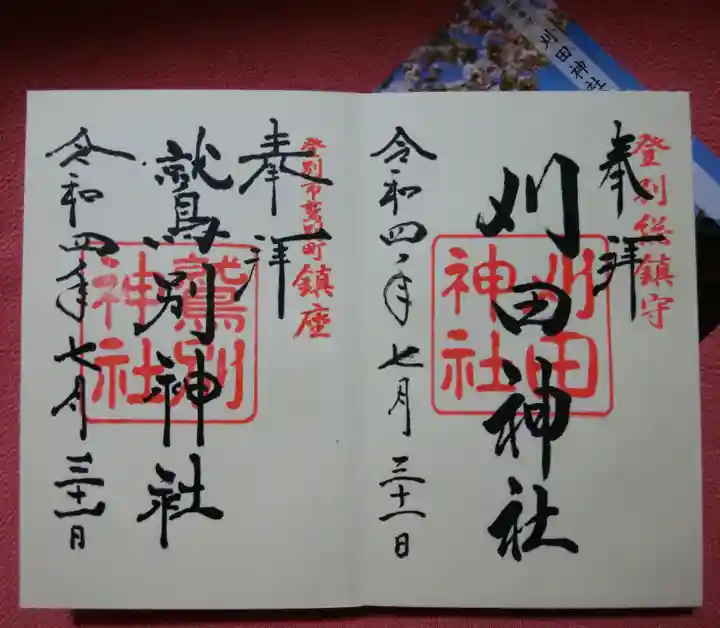 刈田神社
登別総鎮守
奉拝
刈田神社
刈田神社
令和四年七月三十一日
登別市鷲別町鎮座
奉拝
鷲別神社
鷲別神社
令和四年七月三十一日